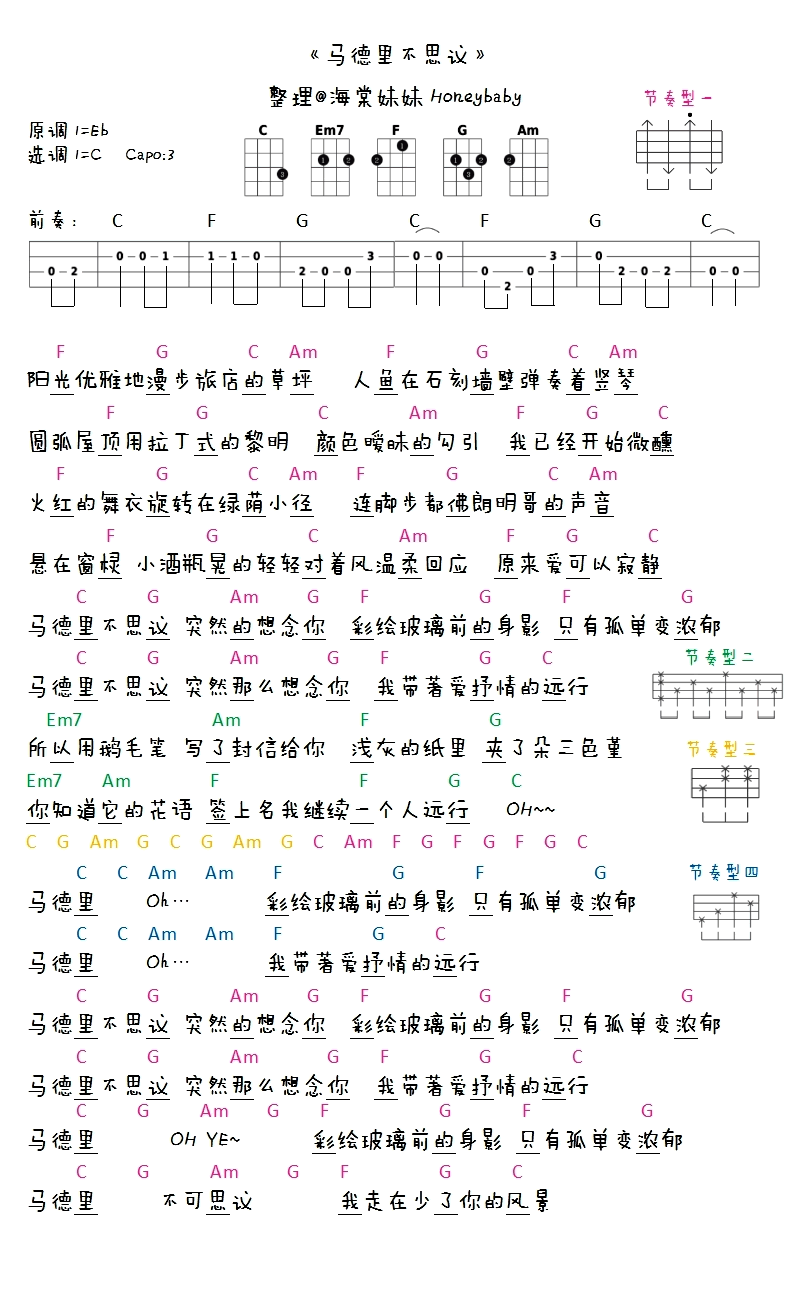 《马德里不思议》
整理@海棠妹妹 Honeybaby
节奏型一
原调 1=Eb
选调 1=C Capo:3
C Em7 F G Am
3 1 2 2 1 1 2 3 1
前奏: C F G C F G C
0 2 0 0 1 1 1 0 2 0 0 3 0 0 0 2 0 3 0 2 0 2 0 0
F G C Am F G C Am
阳光优雅地漫步旅店的草坪 人鱼在石刻墙壁弹奏着竖琴
F G C Am F G C
圆弧屋顶用拉丁式的黎明 颜色暧昧的勾引 我已经开始微醺
F G C Am F G C Am
火红的舞衣旋转在绿荫小径 连脚步都佛朗明哥的声音
F G C Am F G C
悬在窗棂 小酒瓶晃的轻轻对着风温柔回应 原来爱可以寂静
C G Am G F G F G
马德里不思议 突然的想念你 彩绘玻璃前的身影 只有孤单变浓郁
C G Am G F G C
马德里不思议 突然那么想念你 我带著爱抒情的远行
节奏型二
Em7 Am F G
所以用鹅毛笔 写了封信给你 浅灰的纸里 夹了朵三色堇
节奏型三
Em7 Am F F G C
你知道它的花语 签上名我继续一个人远行 OH~~
C G Am G C G Am G C Am F G F G F G C
C C Am Am F G F G
节奏型四
马德里 Oh… 彩绘玻璃前的身影 只有孤单变浓郁
C C Am Am F G C
马德里 Oh… 我带著爱抒情的远行
C G Am G F G F G
马德里不思议 突然的想念你 彩绘玻璃前的身影 只有孤单变浓郁
C G Am G F G C
马德里不思议 突然那么想念你 我带著爱抒情的远行
C G Am G F G F G
马德里 OH YE~ 彩绘玻璃前的身影 只有孤单变浓郁
C G Am G F G C
马德里 不可思议 我走在少了你的风景